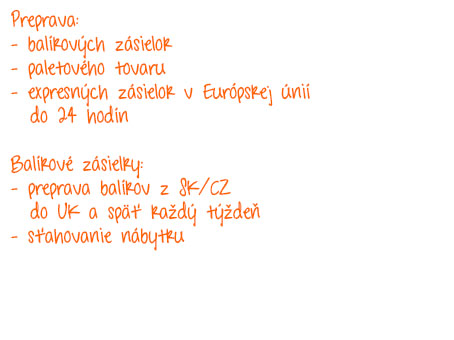 Preprava:
- balíkových zásielok
- paletového tovaru
- expresných zásielok v Európskej únií
do 24 hodín
Balíkové zásielky:
- preprava balíkov z SK/CZ
do UK a späť každý týždeň
- sťahovanie nábytku